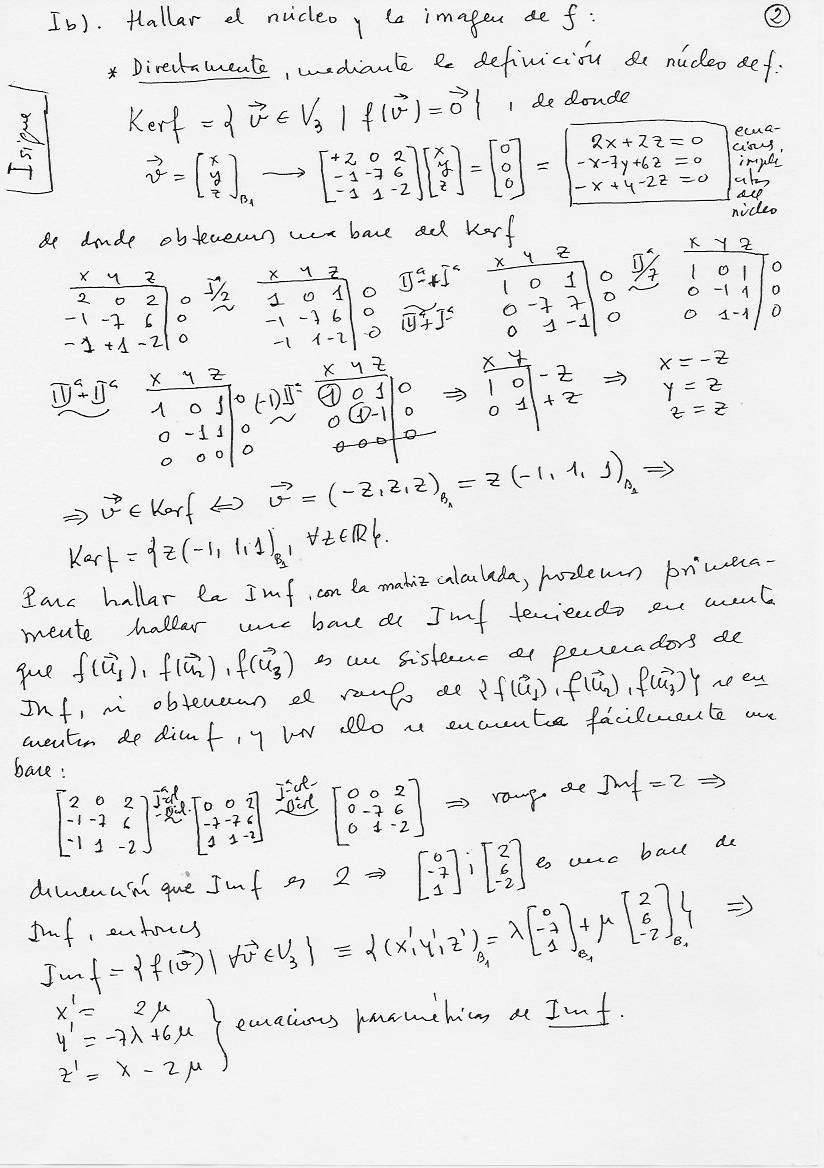 Ib). Hallar el núcleo y la imagen de f: ②
I sigue
* Directamente, mediante la definición de núcleo de f:
Kerf = { v⃗ ∈ V₃ | f(v⃗) = 0⃗ }, de donde
v⃗ = [x y z]_B₁ → [+2 0 2; -1 -7 6; -1 1 -2] [x y z] = [0 0 0] = 2x+2z=0
-x-7y+6z=0
-x+y-2z=0
ecuaciones implícitas del núcleo
de donde obtenemos una base del Kerf
x y z | x y z | x y z | x y z
2 0 2 | 0 Iª/2 ~ 1 0 1 | 0 IIª+Iª 1 0 1 | 0 IIª/7 ~ 1 0 1 | 0
-1 -7 6 | 0 -1 -7 6 | 0 ~ 0 -7 7 | 0 0 -1 1 | 0
-1 +1 -2 | 0 -1 1 -2 | 0 IIIª+Iª 0 1 -1 | 0 0 1 -1 | 0
IIIª+IIª x y z (-1)IIª x y z ⇒ x y ⇒ x = -z
1 0 1 | 0 ~ 1 0 1 | 0 1 0 | -z y = z
0 -1 1 | 0 0 1 -1 | 0 0 1 | +z z = z
0 0 0 | 0 0 0 0 | 0
⇒ v⃗ ∈ Kerf ⇔ v⃗ = (-z, z, z)_B₁ = z(-1, 1, 1)_B₁ ⇒
Kerf = { z(-1, 1, 1)_B₁, ∀z∈ℝ }.
Para hallar la Imf, con la matriz calculada, podemos primera-
mente hallar una base de Imf teniendo en cuenta
que f(u⃗₁), f(u⃗₂), f(u⃗₃) es un sistema de generadores de
Imf, si obtenemos el rango de {f(u⃗₁), f(u⃗₂), f(u⃗₃)} se en
cuentra de dim f, y por ello se encuentra fácilmente una
base:
[2 0 2; -1 -7 6; -1 1 -2] Iªcol-IIIªcol ~ [0 0 2; -7 -7 6; 1 1 -2] Iªcol-IIªcol ~ [0 0 2; 0 -7 6; 0 1 -2] ⇒ rango de Imf = 2 ⇒
dimensión que Imf es 2 ⇒ [0 -7 1] ; [2 6 -2] es una base de
Imf, entonces
Imf = { f(v⃗) | ∀v⃗ ∈ V₃ } ≡ { (x', y', z')_B₁ = λ[0 -7 1]_B₁ + μ[2 6 -2]_B₁ } ⇒
x' = 2μ
y' = -7λ+6μ } ecuaciones paramétricas de Imf.
z' = λ - 2μ